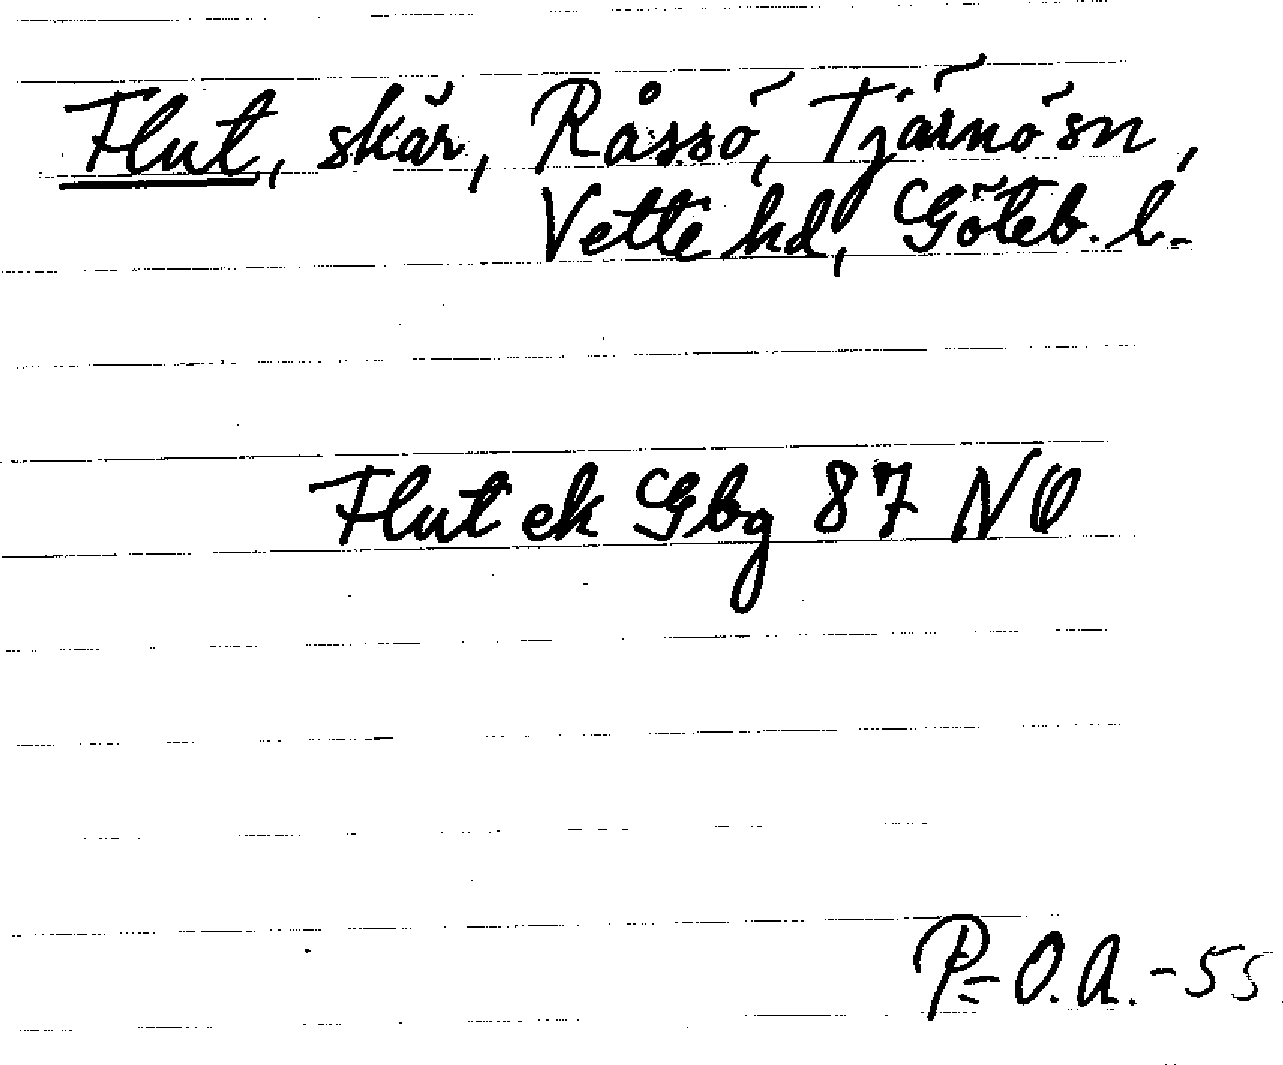 Flut, skär, Råssö, Tjärnö sn,
Vette hd, Göteb. l.
Flut ek Gbg 87 NO
P-O.A.-55.